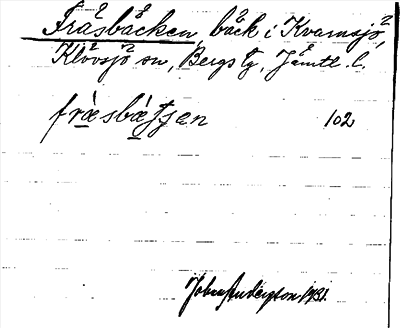 Fräsbäcken, bäck i Kvarnsjö,
Klövsjö sn, Bergs tg, Jämtl. l.
fræ̀sbæ̀tʃen 102
John Anderson 1931.